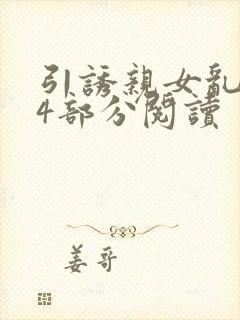 引誘親女亂
4部分閱讀
姜哥